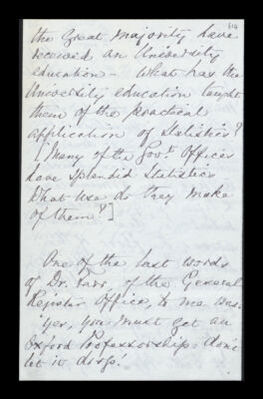 the Great Majority have
received an University
education - What has the
University education taught
them of the practical
application of Statistics?
[Many of the Govt. Offices
have splendid Statistics
What use do they make
of them?]
One of the last words
of Dr. Farr, of the General
Register Office, to me was:
"Yes, you must get an
Oxford Professorship: don't
let it drop."